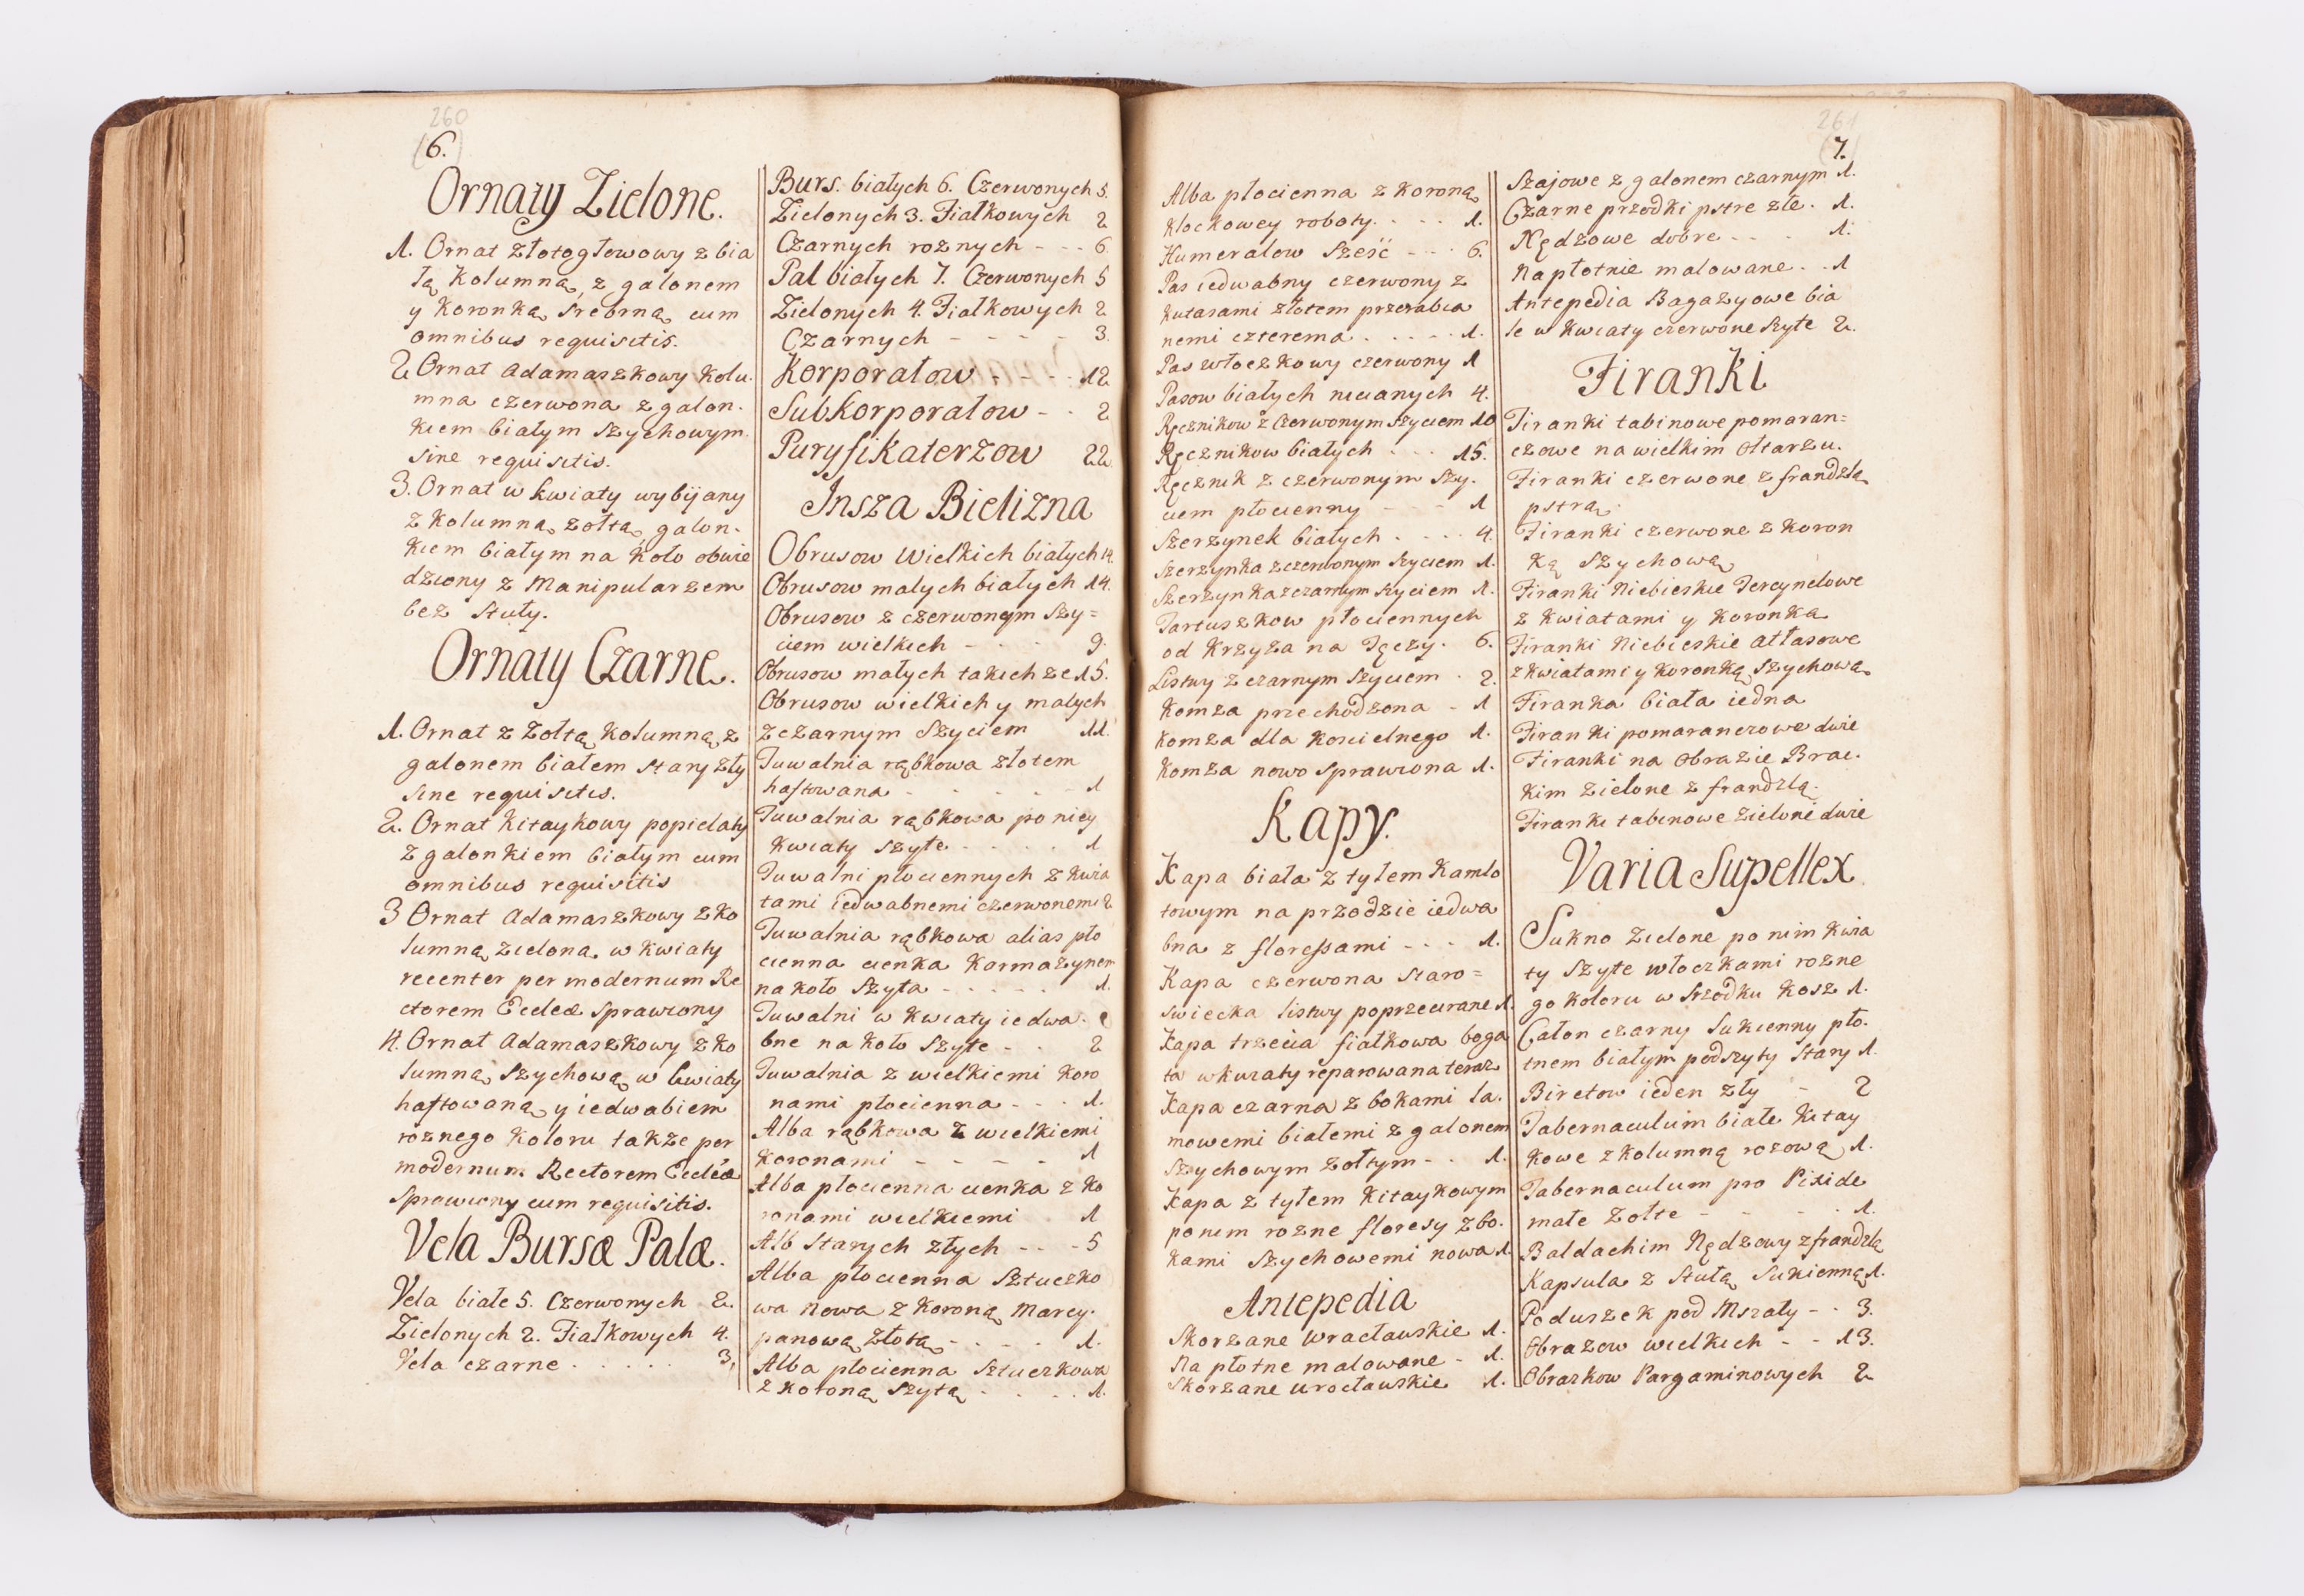 260
(6.)
Ornaty Zielone.
1. Ornat złotogłowowy z bia
łą Kolumną, z galonem
y Koronką srebrną cum
omnibus requisitis.
2 Ornat Adamaszkowy Kolu-
mna czerwona z galon-
kiem białym szychowym
sine requisitis.
3. Ornat w kwiaty wybijany
z Kolumną zołtą galon-
kiem białym na koło obwie
dziony z Manipularzem
bez stuły.
Ornaty Czarne.
1. Ornat z Zołtą Kolumną z
galonem białem stary zły
sine requisitis.
2. Ornat Kitaykowy popielaty
z galonkiem białym cum
omnibus requisitis
3 Ornat Adamaszkowy z Ko
lumną zieloną w kwiaty
recenter per modernum Re
ctorem Eccleæ sprawiony
4. Ornat Adamaszkowy z Ko
lumną szychową w kwiaty
haftowaną y iedwabiem
roznego koloru takze per
modernum Rectorem Eccleæ
sprawiony cum requisitis.
Vela Bursæ Palæ.
Vela białe 5. Czerwonych 2.
Zielonych 2. Fiałkowych 4.
Vela czarne . . . . . 3,
Burs. białych 6. Czerwonych 5.
Zielonych 3. Fiałkowych 2
Czarnych roznych - - - 6
Pal białych 7. Czerwonych 5
Zielonych 4. Fiałkowych 2
Czarnych - - - - 3.
Korporałow - - - 12
Subkorporałow - - 2
Puryfikaterzow 22
Insza Bielizna
Obrusow Wielkich białych 14.
Obrusow małych białych 14.
Obrusow z czerwonym szy=
ciem wielkich - - - 9.
Obrusow małych takich ze 15.
Obrusow wielkich y małych
z czarnym szyciem 11.
Tuwalnia rąbkowa złotem
haftowana - - - - - 1
Tuwalnia rąbkowa po niey
kwiaty szyte - - - - 1
Tuwalni płociennych z kwia
tami iedwabnemi czerwonemi 2
Tuwalnia rąbkowa alias pło
cienna cienka Karmazynem
na koło szyta - - - - - 1.
Tuwalni w kwiaty iedwa-
bne na koło szyte - - 2
Tuwalnia z wielkiemi koro
nami płocienna - - - 1.
Alba rąbkowa z wielkiemi
koronami - - - - 1
Alba płocienna cienka z ko
ronami wielkiemi 1
Alb starych złych - - - 5
Alba płocienna sztuczko
wa nowa z koroną marcy-
panową złotą - - - - 1.
Alba płocienna sztuczkowa
z koroną szytą - - - - 1.
261
(7.)
Alba płocienna z koroną
klockowey roboty - - - 1.
Humerałow sześć - - - 6.
Pas iedwabny czerwony z
kutasami złotem przerabia
nemi czterema . . . . . 1.
Pas włoczkowy czerwony 1
Pasow białych nicianych 4.
Ręcznikow z Czerwonym szyciem 10
Ręcznikow białych . . . 15.
Ręcznik z czerwonym szy-
ciem płocienny - - - 1
Szerzynek białych . . . . 4.
Szerzynka z czerwonym szyciem 1.
Szerzynka z czarnym szyciem 1.
Fartuszkow płociennych
od Krzyza na Tęczy. 6.
Listwy z czarnym szyciem . 2.
Komza przechodzona - 1
Komza dla kościelnego 1.
Komza nowo sprawiona 1.
Kapy.
Kapa biała z tyłem Kamlo
towym na przodzie iedwa
bna z floressami - - - 1.
Kapa czerwona staro=
swiecka listwy poprzecierane 1.
Kapa trzecia fiałkowa boga
ta w kwiaty reparowana teraz
Kapa czarna z bokami la-
mowemi białemi z galonem
szychowym zołtym - - 1.
Kapa z tyłem Kitaykowym
po nim rozne floresy z bo-
kami szychowemi nowa 1.
Antepedia
Skorzane wracławskie 1.
Na płotne malowane - 1.
Skorzane wrocławskie 1.
Szajowe z galonem czarnym 1.
Czarne przodki pstre złe . 1.
Nędzowe dobre - - - 1.
Na płotnie malowane . . 1
Antepedia Bagazyowe bia
łe w kwiaty czerwone szyte 2.
Firanki
Firanki tabinowe pomaran=
czowe na wielkim Ołtarzu.
Firanki czerwone z frandzlą
pstrą
Firanki czerwone z koron
ką szychową
Firanki Niebieskie Tercynelowe
z kwiatami y koronką
Firanki Niebieskie atłasowe
z kwiatami y koronką szychową
Firanka biała iedna
Firanki pomaranczowe dwie
Firanki na Obrazie Brac-
kim zielone z frandzlą.
Firanki tabinowe zielone dwie
Varia Supellex
Sukno zielone po nim kwia
ty szyte włoczkami rozne
go koloru w srzodku kosz 1.
Całon czarny sukienny pło-
tnem białym podszyty stary 1.
Biretow ieden zły - 2
Tabernaculum białe Kitay
kowe z kolumną rozową 1.
Tabernaculum pro Pixide
małe zołte - - - - 1.
Baldachim Nędzowy z frandzlą
Kapsula z stułą sukienną 1.
Poduszek pod Mszały - - 3.
Obrazow wielkich - - 13.
Obrazkow Pargaminowych 2